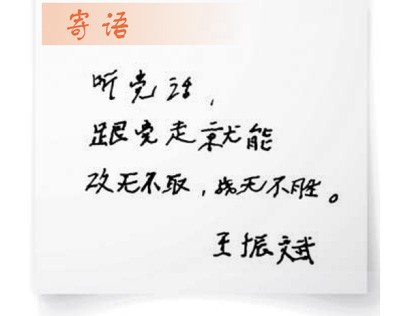 寄语
听党话，
跟党走就能
攻无不取，战无不胜。
王振斌